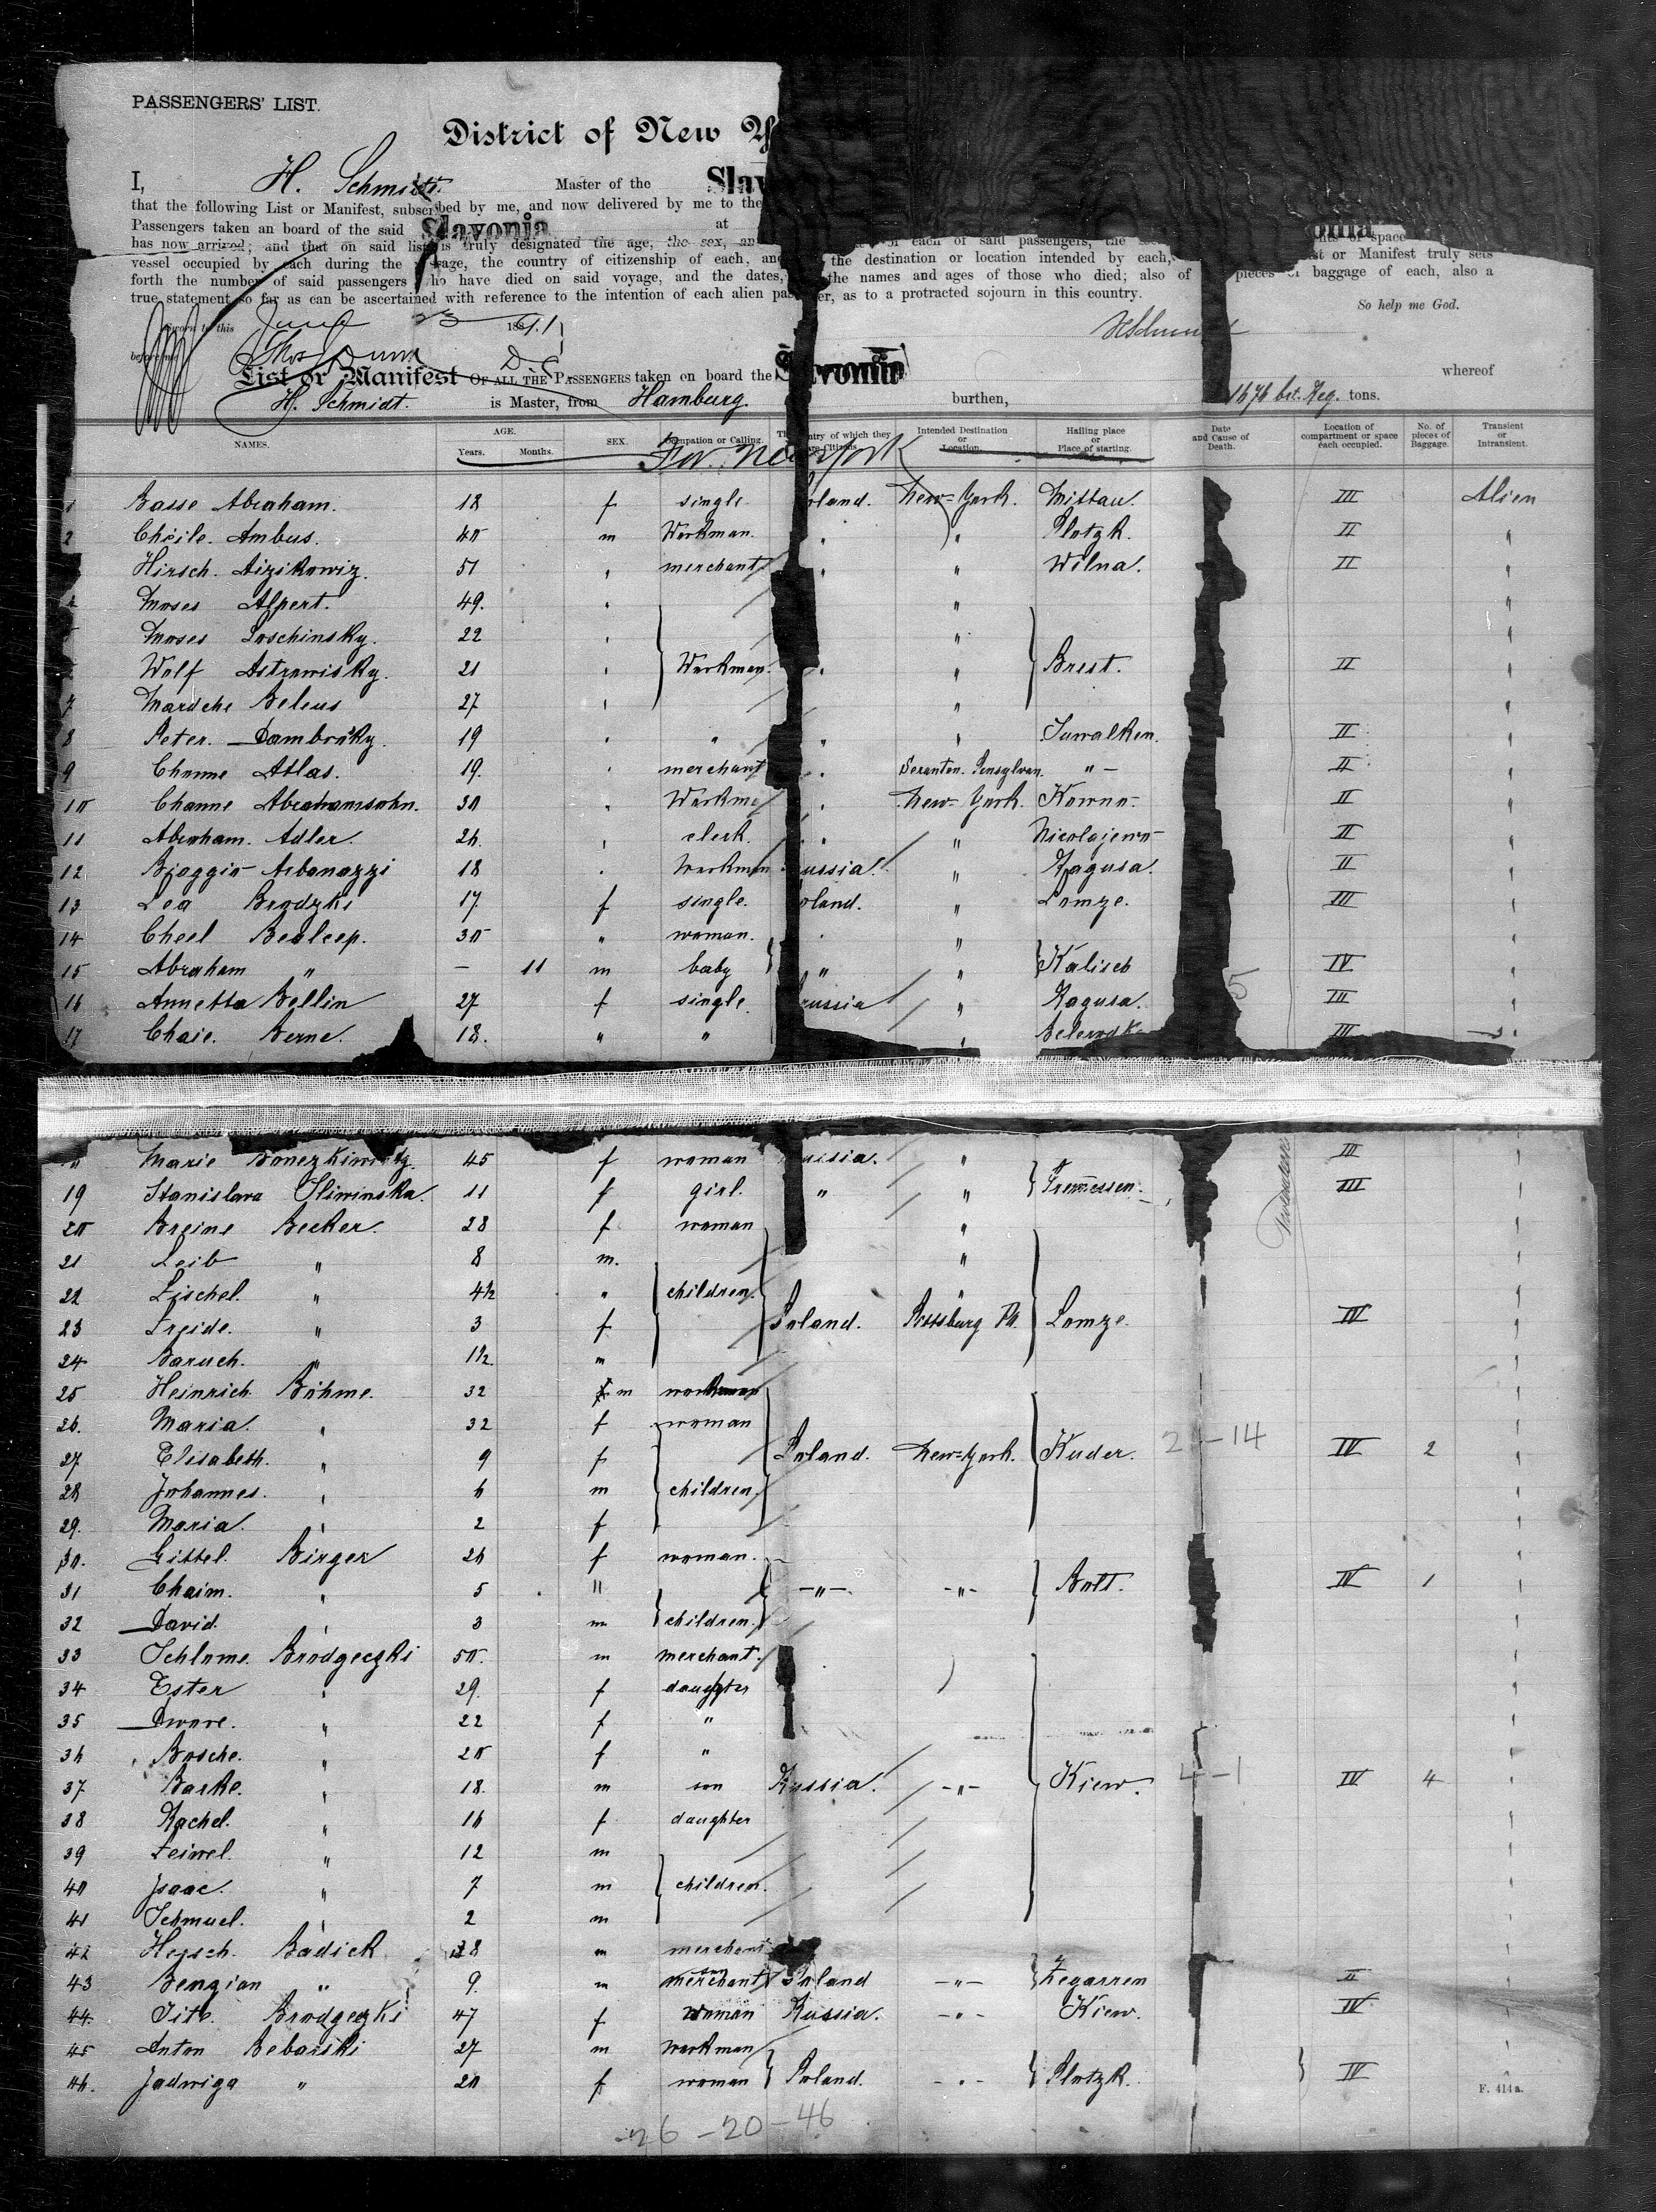 PASSENGERS' LIST.
District of New Y
I, H. Schmidt. Master of the Slav
that the following List or Manifest, subscribed by me, and now delivered by me to the
Passengers taken on board of the said Slavonia at
has now arrived; and that on said list is truly designated the age, the sex, an of each of said passengers, the of space
vessel occupied by each during the voyage, the country of citizenship of each, an the destination or location intended by each, st or Manifest truly sets
forth the number of said passengers who have died on said voyage, and the dates, the names and ages of those who died; also of pieces of baggage of each, also a
true statement so far as can be ascertained with reference to the intention of each alien passenger, as to a protracted sojourn in this country.
So help me God.
Sworn to this June 23 1891
before me
List or Manifest OF ALL THE PASSENGERS taken on board the Slavonia whereof
H. Schmidt. is Master, from Hamburg. burthen, 1676 Reg. tons.
NAMES. AGE. Years. Months. SEX. Occupation or Calling. The Country of which they are Citizens. Intended Destination or Location. Hailing place or Place of starting. Date and Cause of Death. Location of compartment or space each occupied. No. of pieces of Baggage. Transient or Intransient.
For New York
1 Basse Abraham. 18 f single oland. New-York. Mittau. III Alien
2 Cheile. Ambus. 40 m Workman. " " Plotzk. II "
Hirsch. Aizikowiz. 51 " merchant " " Wilna. II "
Moses Alpert. 49. " " "
Moses Soschinsky. 22 " " "
Wolf Astrowisky. 21 " Workman. " " Brest. II "
7 Mardche Beleus 27 " " "
8 Peter. Dambrisky. 19 " " " " Suwalken. II "
9 Chonne Atlas. 19. " merchant " Scranton. Pensylvan. " II "
10 Channe Abrahamsohn. 30 " Workma " New-York. Kowno. II "
11 Abraham. Adler. 26. " clerk. " " Nicolajewo II "
12 Biaggio Arbanazzi 18 " Workman ussia. " Ragusa. II "
13 Lea Brodzki 17. f single. oland. " Lomze. III "
14 Cheel Bealeep. 30 " woman. " "
15 Abraham " — 11 m baby " " Kalisch IV "
16 Annetta Bellin 27 f single. russia " Ragusa. III "
17 Chaie. Berne. 18. " " " Belerodk III "
Marie 45 f woman ussia. " III "
19 Stanislava Sliwinska. 11 f girl. " " Tremessen. III "
20 Breine Becker. 28 f woman " "
21 Leib " 8 m. " "
22 Zischel. " 4½ " children. " "
23 Freide. " 3 f Poland. Pittsburg Pa. Lomze. IV "
24 Baruch. " 1½ m "
25 Heinrich Böhme. 32 m workman "
26. Maria. " 32 f woman "
27 Elisabeth. " 9 f Poland. New-York. Kuder. 24-14 IV 2 "
28 Johannes. " 6 m children. "
29. Maria. " 2 f "
30. Gittel. Birger 26 f woman. "
31 Chaim. " 5 " -"- -"- Bolt. IV 1 "
32 David. " 3 m children. "
33 Schlome. Brodgeczki 50. m merchant. "
34 Ester " 29. f daughter "
35 Dwore. " 22 f " "
36 Bosche. " 20 f " "
37 Barke. " 18. m son Russia. -"- Kiew. 4-1 IV 4 "
38 Rachel. " 16 f daughter "
39 Leiwel. " 12 m "
40 Isaac. " 7 m children. "
41 Schmuel. " 2 m "
42 Hersch. Badick 38 m merchant "
43 Benzion " 9. m son merchant Poland -"- Zegarren II "
44. Brodgeczki 47 f woman Russia. -"- Kiew. IV "
45 Anton Bebarski 27 m workman "
46. Jadwiga " 20 f woman Poland. -"- Plotzk. IV
F. 414a.
26-20-46